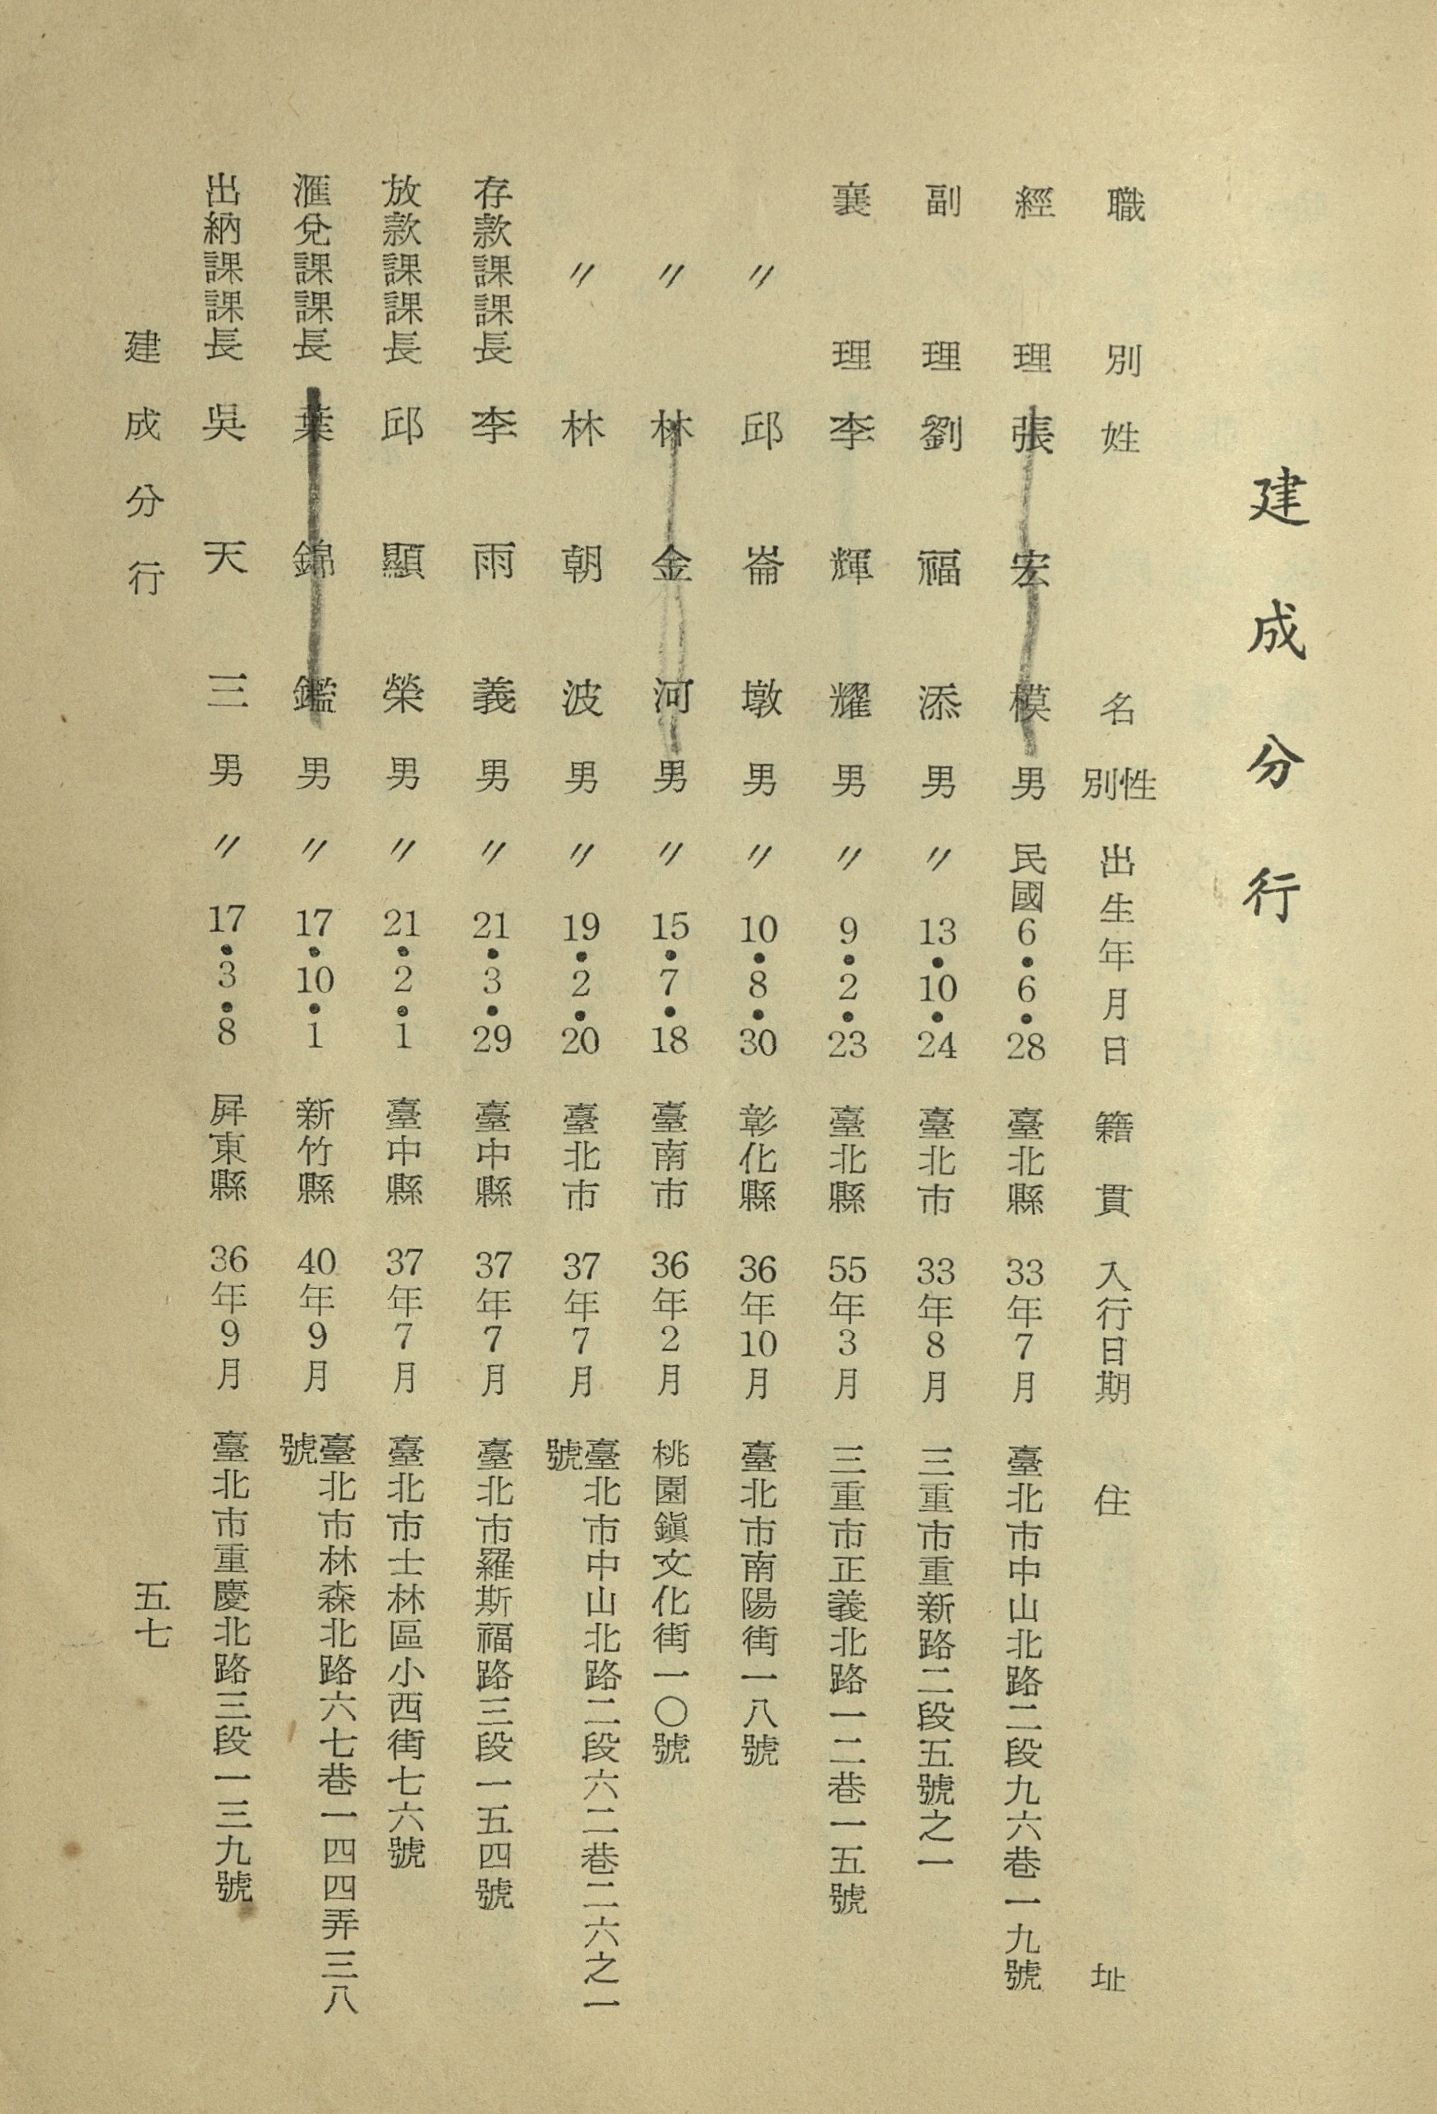 建成分行
職別 姓名 性別 出生年月日 籍貫 入行日期 住址
經理 張宏模 男 民國6•6•28 臺北縣 33年7月 臺北市中山北路二段九六巷一九號
副理 劉福添 男 〃13•10•24 臺北市 33年8月 三重市重新路二段五號之一
襄理 李輝耀 男 〃9•2•23 臺北縣 55年3月 三重市正義北路一二巷一五號
〃 邱崙墩 男 〃10•8•30 彰化縣 36年10月 臺北市南陽街一八號
〃 林金河 男 〃15•7•18 臺南市 36年2月 桃園鎭文化街一〇號
〃 林朝波 男 〃19•2•20 臺北市 37年7月 臺北市中山北路二段六二巷二六之一
號
存款課課長 李雨義 男 〃21•3•29 臺中縣 37年7月 臺北市羅斯福路三段一五四號
放款課課長 邱顯榮 男 〃21•2•1 臺中縣 37年7月 臺北市士林區小西街七六號
滙兌課課長 葉錦鑑 男 〃17•10•1 新竹縣 40年9月 臺北市林森北路六七巷一四四弄三八
號
出納課課長 吳天三 男 〃17•3•8 屛東縣 36年9月 臺北市重慶北路三段一三九號
建成分行 五七